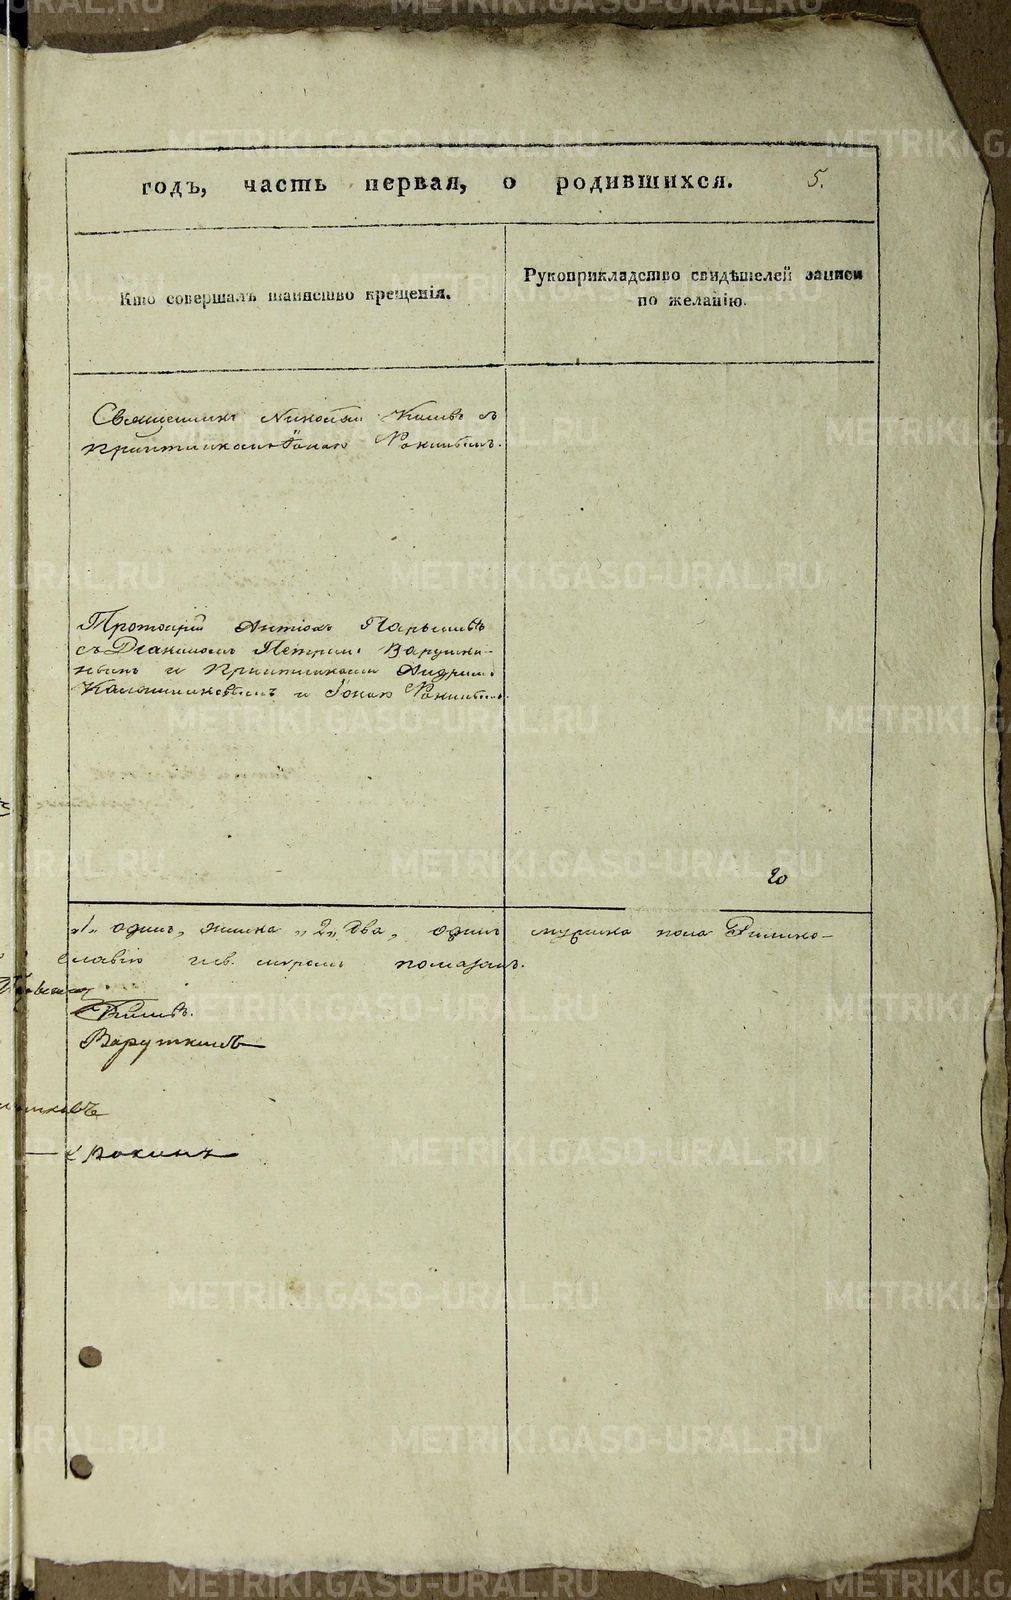 годъ, часть первая, о родившихся. 5.
Кто совершалъ таинство крещенія.
Рукоприкладство свидѣтелей записи
по желанію.
Священникъ Николай съ
причетникомъ Іоною Фокинымъ.
Протоіерей Антіохъ
съ Діакономъ Петромъ Варушки-
нымъ и причетниками Андреемъ
Калашниковымъ и Іоною Фокинымъ.
20
„1„ одинъ, женска „2„ два, одинъ мужска пола Римско-
славію и св. муромъ помазанъ.
Варушкинъ
Фокинъ
METRIKI.GASO-URAL.RU